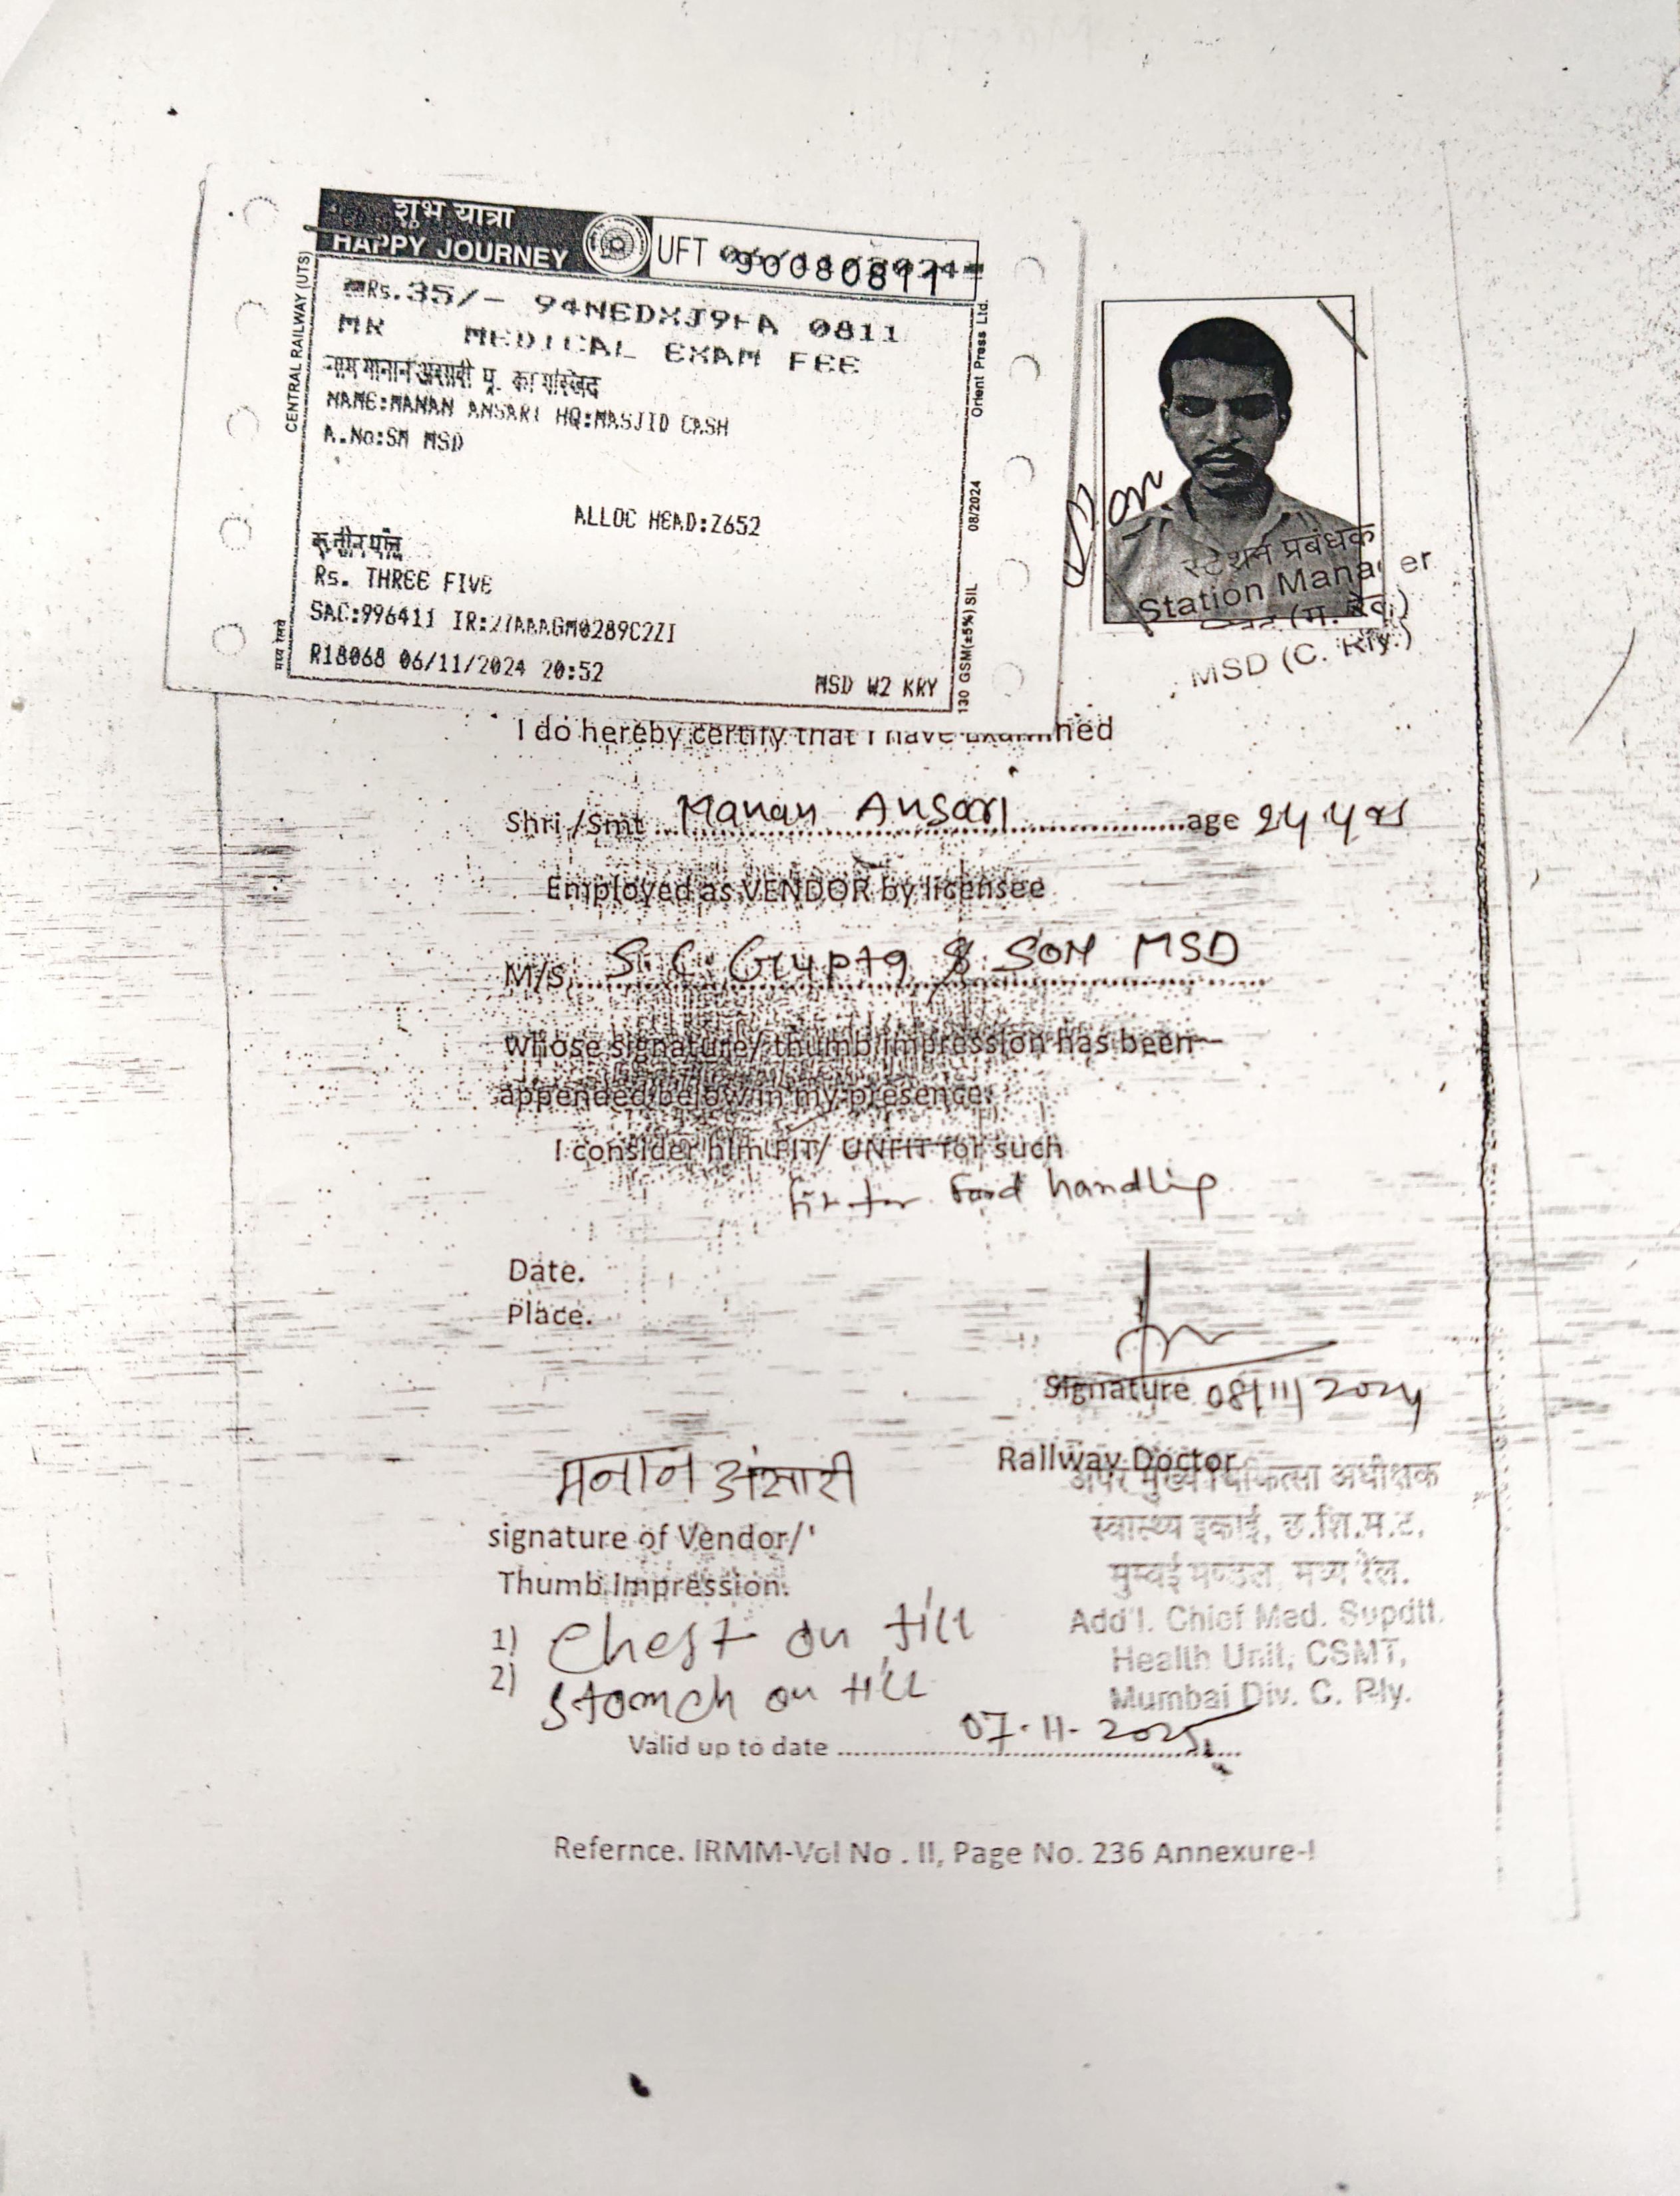 शुभ यात्रा
HAPPY JOURNEY
UFT 90080811
CENTRAL RAILWAY (UTS)
Rs.35/- 94NEDXJ9FA 0811
MR MEDICAL EXAM FEE
NAME:MANAN ANSARI HQ:MASJID CASH
A.No:SM MSD
ALLOC HEAD:Z652
रू.तीन पांच
Rs. THREE FIVE
SAC:996411 IR:27AAAGM0289C2ZI
R18068 06/11/2024 20:52
MSD W2 KRY
मध्य रेलवे
130 GSM(±5%) SIL 08/2024 Orient Press Ltd.
स्टेशन प्रबंधक
Station Manager
MSD (C. Rly.)
I do hereby certify that I have examined
Shri /Smt Manan Ansari age 24 yrs
Employed as VENDOR by licensee
M/S. S. C. Gupta & SON MSD
Whose signature/ thumb impression has been
appended below in my presence.
I consider him FIT/ UNFIT for such
Fit for food handling
Date.
Place.
Signature 08/11/2024
Railway Doctor
अपर मुख्य चिकित्सा अधीक्षक
स्वास्थ्य इकाई, छ.शि.म.ट.
मुम्बई मण्डल, मध्य रेल.
Add'l. Chief Med. Supdtt.
Health Unit, CSMT,
Mumbai Div. C. Rly.
मनान अंसारी
signature of Vendor/'
Thumb Impression.
1) Chest on till
2) Stomch on till
Valid up to date 07-11-2025
Refernce. IRMM-Vol No . II, Page No. 236 Annexure-I